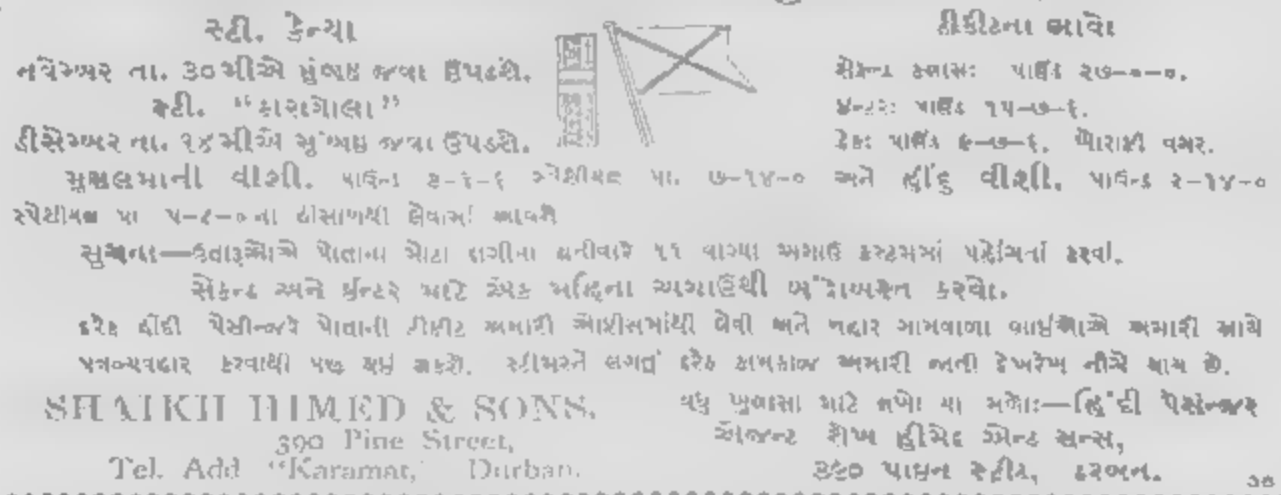 સ્ટી. કેન્યા
નવેમ્બર તા. ૩૦મીએ મુંબઇ જવા ઉપડશે.
સ્ટી. “કારાગોલા”
ડીસેમ્બર તા. ૧૪મીએ મુંબઇ જવા ઉપડશે.
ટીકીટના ભાવો
સેકન્ડ ક્લાસઃ પાઉંડ ૨૭—૦—૦.
ઈન્ટરઃ પાઉંડ ૧૫—૭—૬.
ડેકઃ પાઉંડ ૯—૭—૬. ખોરાકી વગર.
મુસલમાની વીશી. પાઉન્ડ સ્પેશીયલ પા. ૭-૧૪-૦ અને હીંદુ વીશી. પાઉન્ડ ૨-૧૪-૦
સ્પેશીયલ પા ના હીસાબથી લેવામાં આવશે
સુચના—ઉતારૂઓએ પોતાના મોટા દાગીના શનીવારે ૧૧ વાગ્યા અગાઉ કસ્ટમમાં પહોંચતાં કરવાં.
સેકન્ડ અને ઈન્ટર માટે એક મહિના અગાઉથી બંદોબસ્ત કરવો.
દરેક હીંદી પેસીન્જરે પોતાની ટીકીટ અમારી ઓફીસમાંથી લેવી અને બહાર ગામવાળા ભાઇઓએ અમારી સાથે
પત્રવ્યવહાર કરવાથી પણ થઈ શકશે. સ્ટીમરને લગતું દરેક કામકાજ અમારી જાતી દેખરેખ નીચે થાય છે.
SHAIKH HIMED & SONS.
390 Pine Street,
Tel. Add “Karamat,” Durban.
વધુ ખુલાસા માટે લખો યા મળોઃ—હિંદી પેસેન્જર
એજન્ટ શેખ હીમેદ એન્ડ સન્સ,
૩૯૦ પાઇન સ્ટ્રીટ, ડરબન.